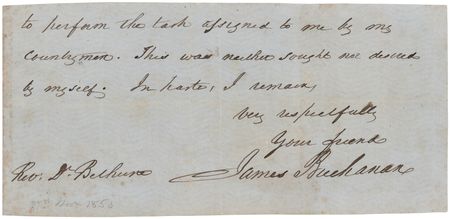 to perform the task assigned to me by my
countrymen. This was neither sought nor desired
by myself. In haste, I remain,
very respectfully
Your friend
Rev: Dr Bethune James Buchanan